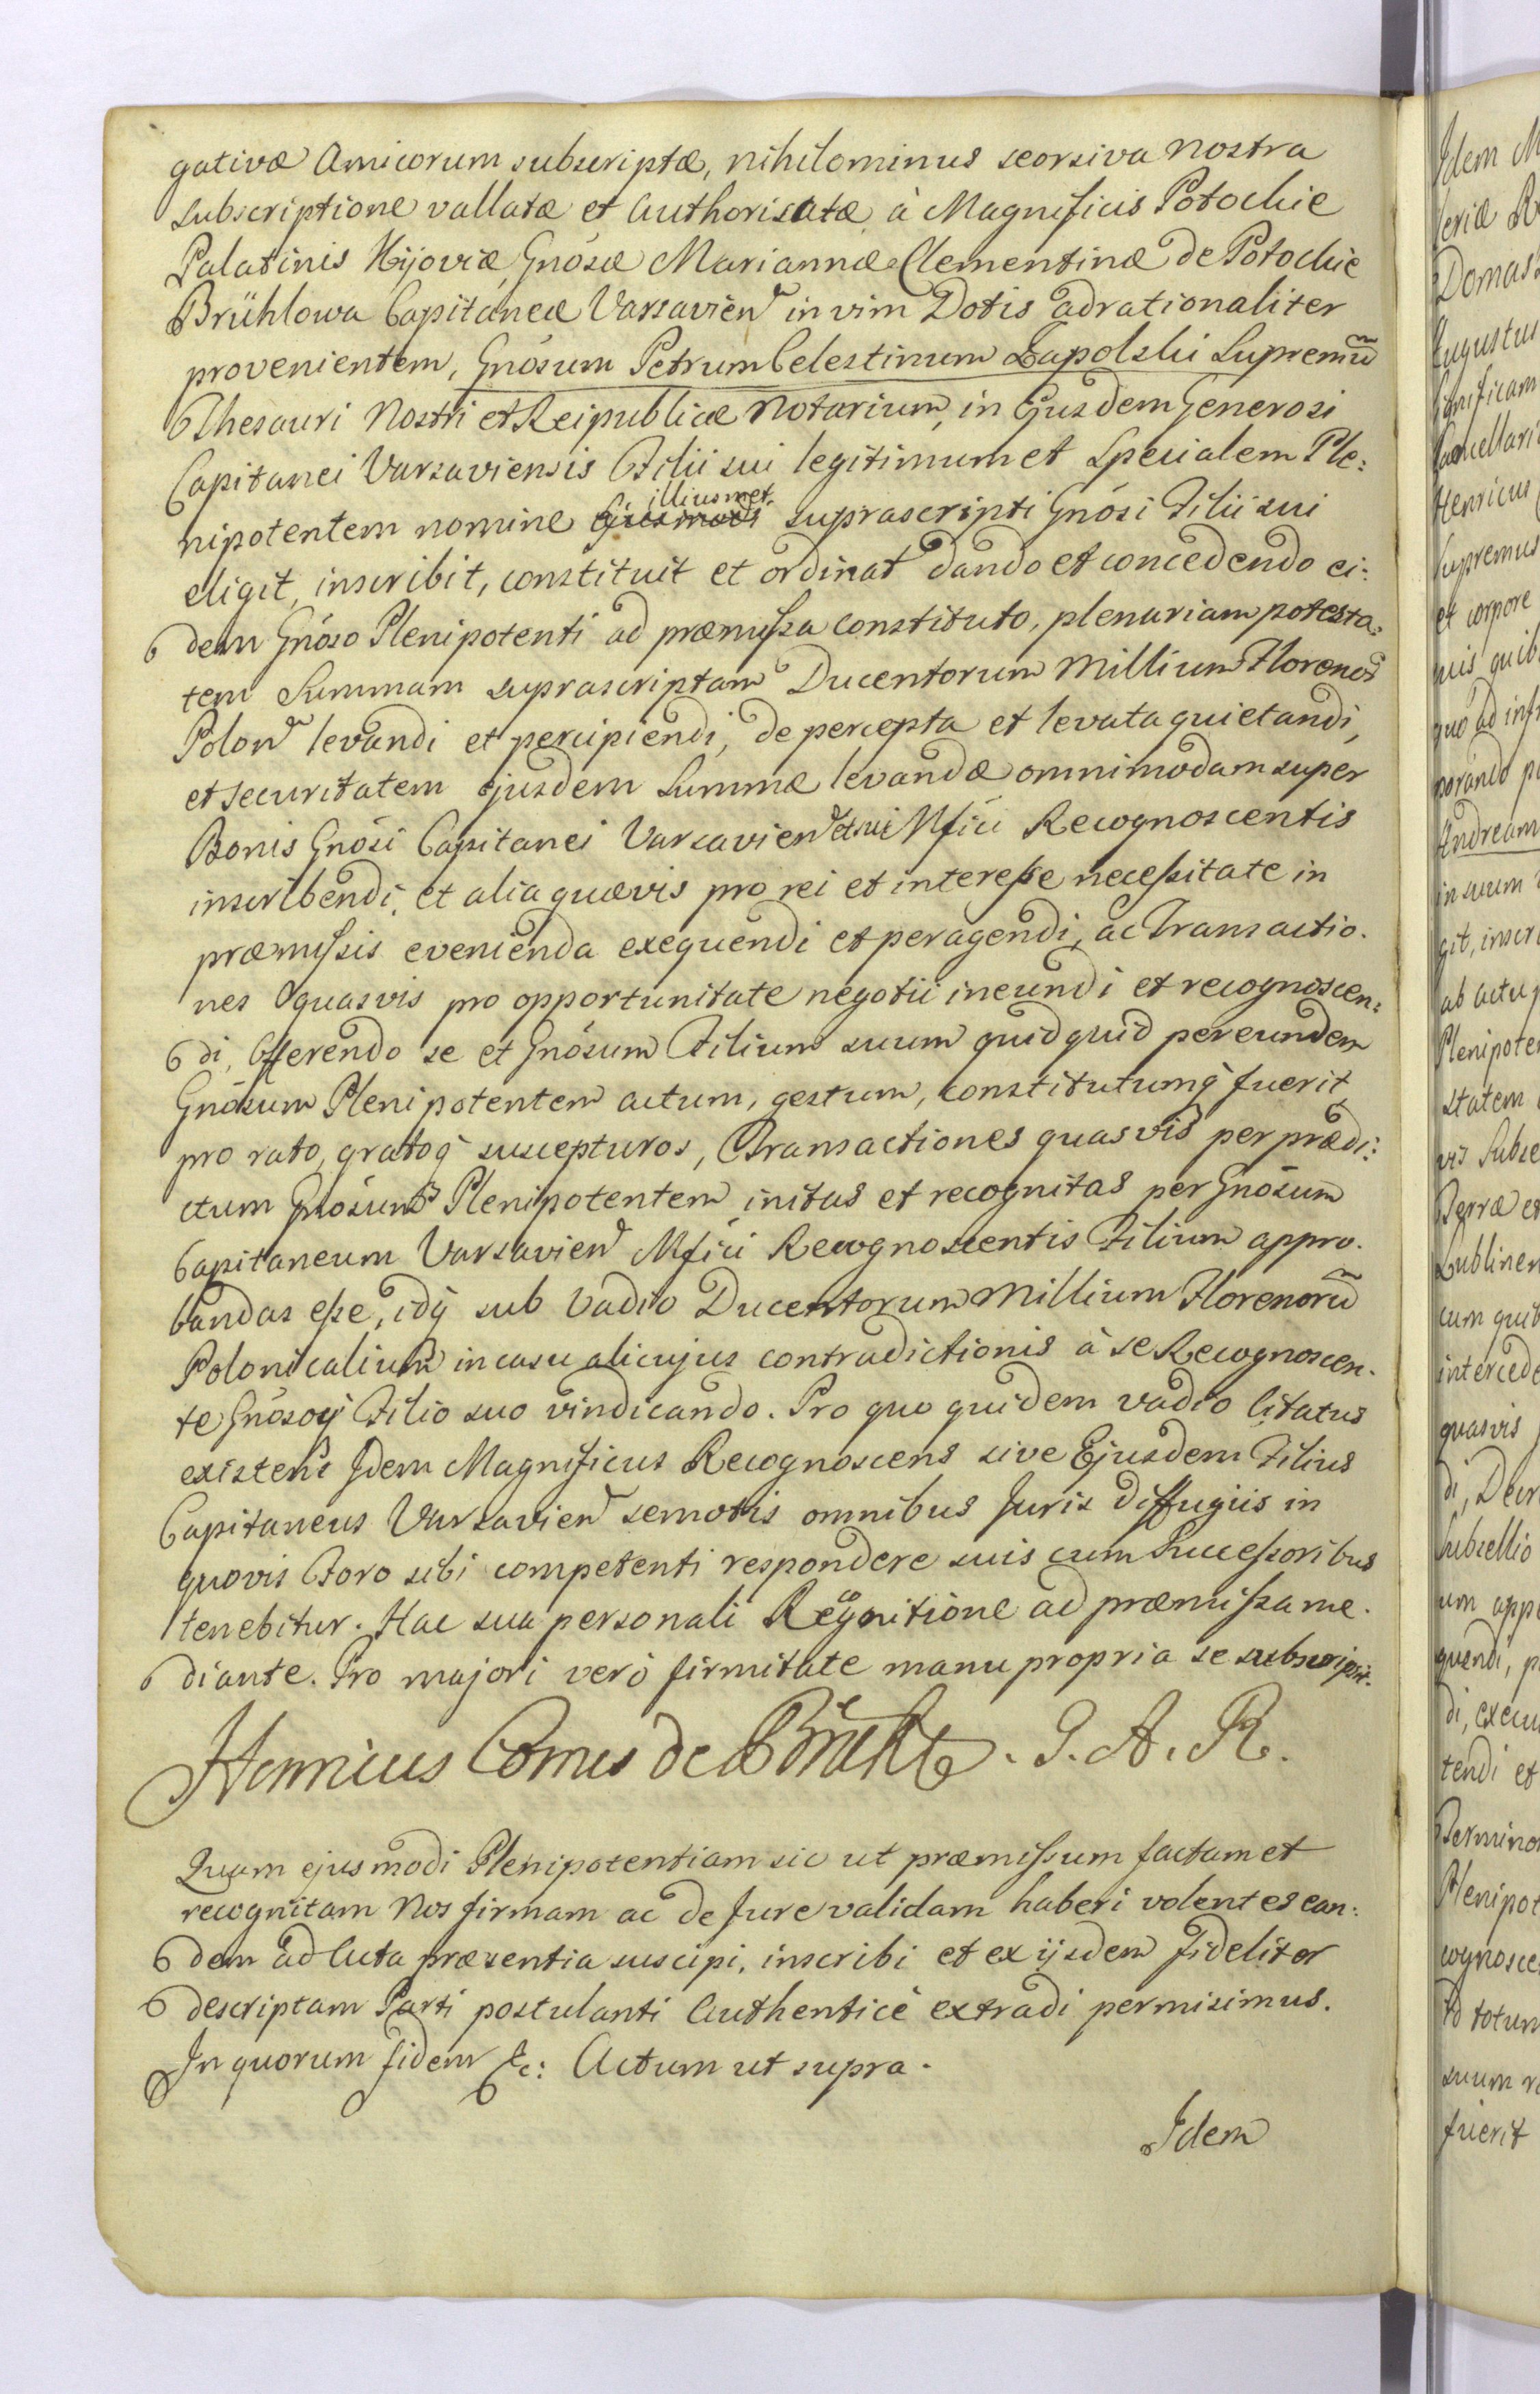 gativæ Amicorum subscriptæ, nihilominus seorsiva nostra
subscriptione vallatæ et authorisatæ à Magnificis Potockie
Palatinis Kijoviæ, Gnósæ Mariannæ Clementinæ de Potockie
Brühlowa Capitaneæ Varsavien in vim Dotis adrationaliter
provenientem, Gnósum Petrum Celestinum Łapolski Supremũ
Thesauri Nostri et Reipublicæ Notarium, in Ejusdem Generosi
Capitanei Varsaviensis Filii sui legitimum et Specialem Ple:
nipotentem nomine ejusmodi illiusmet suprascripti Gnósi Filii sui
eligit, inscribit, constituit et ordinat dando et concedendo ei:
dem Gnóso Plenipotenti ad præmissa constituto, plenariam potesta:
tem Summam suprascriptam Ducentorum Millium Florenoꝝ
Polon levandi et percipiendi, de percepta et levata quietandi,
et securitatem ejusdem Summæ levandæ omnimodam super
Bonis Gnósi Capitanei Varsavien et sui Mfici Recognoscentis
inscribendi, et alia quævis pro rei et interesse necessitate in
præmissis evenienda exequendi et peragendi, ac Transactio.
nes quasvis pro opportunitate negotii ineundi et recognoscen:
di, Offerendo se et Gnósum Filium suum quidquid per eundem
Gnósum Plenipotentem actum, gestum, constitutumq̃ fuerit
pro rato, gratoq̃ suscepturos, Transactiones quasvis per prædi:
ctum Gnósum Plenipotentem initas et recognitas per Gnósum
Capitaneum Varsavien Mfici Recognoscentis Filium appro.
bandas esse, idq̃ sub Vadio Ducentorum Millium Florenorũ
Polonicalium in casu alicujus contradictionis à se Recognoscen.
te Gnósoq̃ Filio suo vindicando. Pro quo quidem vadio Citatus
existens Idem Magnificus Recognoscens sive Ejusdem Filius
Capitaneus Varsavien semotis omnibus Juris diffugiis in
quovis Foro sibi competenti respondere suis cum Successoribus
tenebitur. Hac sua personali Recognitione ad præmissa me.
diante. Pro majori verò firmitate manu propria se subscripsit.
Henricus Comes de Brühl. G. A. R.
Quam ejusmodi Plenipotentiam sic ut præmissum factam et
recognitam Nos firmam ac de Jure validam haberi volentes ean:
dem ad Acta præsentia suscipi, inscribi et ex ijsdem fideliter
descriptam Parti postulanti Authenticè extradi permisimus.
In quorum fidem &c: Actum ut supra.
Idem